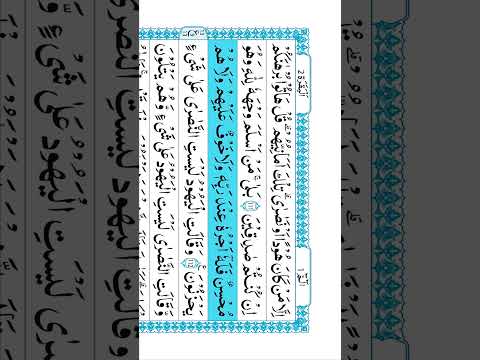 الٓمّٓ ١
اَلْبَقَرَة ٢
اِلَّا مَنْ كَانَ هُوْدًا اَوْ نَصٰرٰىؕ تِلْكَ اَمَانِيُّهُمْؕ قُلْ هَاتُوْا بُرْهَانَكُمْ
اِنْ كُنْتُمْ صٰدِقِيْنَ ﴿۱۱۱﴾ بَلٰىۗ مَنْ اَسْلَمَ وَجْهَهٗ لِلّٰهِ وَهُوَ
مُحْسِنٌ فَلَهٗۤ اَجْرُهٗ عِنْدَ رَبِّهٖ۪ وَلَا خَوْفٌ عَلَيْهِمْ وَلَا هُمْ
يَحْزَنُوْنَ ﴿۱۱۲﴾ وَقَالَتِ الْيَهُوْدُ لَيْسَتِ النَّصٰرٰى عَلٰى شَیْءٍ۪
وَّقَالَتِ النَّصٰرٰى لَيْسَتِ الْيَهُوْدُ عَلٰى شَیْءٍۙ وَّهُمْ يَتْلُوْنَ